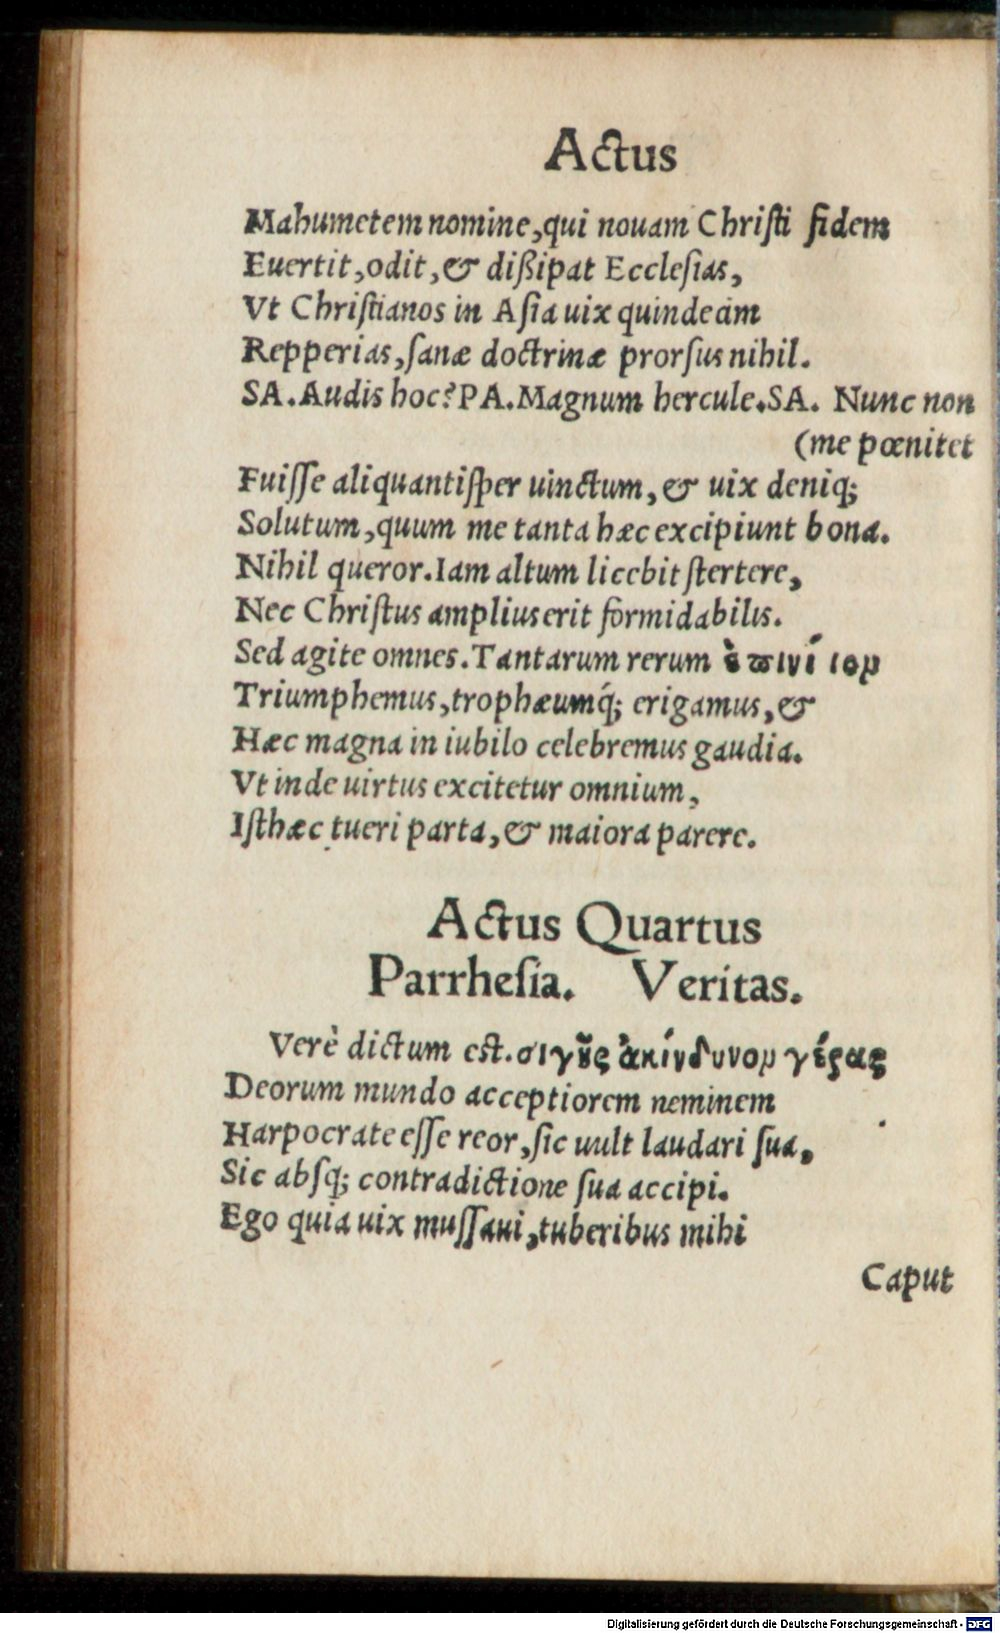 Actus
Mahumetem nomine, qui nouam Christi fidem
Euertit, odit, & dißipat Ecclesias,
Vt Christianos in Asia uix quindecim
Repperias, sanæ doctrinæ prorsus nihil.
SA. Audis hoc? PA. Magnum hercule. SA. Nunc non
(me pœnitet
Fuisse aliquantisper uinctum, & uix deniq;
Solutum, quum me tanta hæc excipiunt bona.
Nihil queror. Iam altum licebit stertere,
Nec Christus amplius erit formidabilis.
Sed agite omnes. Tantarum rerum ἐπινίκιον
Triumphemus, trophæumq́; erigamus, &
Hæc magna in iubilo celebremus gaudia.
Vt inde uirtus excitetur omnium,
Isthæc tueri parta, & maiora parere.
Actus Quartus
Parrhesia. Veritas.
Verè dictum est. σιγῆς ἀκίνδυνον γέρας
Deorum mundo acceptiorem neminem
Harpocrate esse reor, sic uult laudari sua,
Sic absq; contradictione sua accipi.
Ego quia uix mussaui, tuberibus mihi
Caput
Digitalisierung gefördert durch die Deutsche Forschungsgemeinschaft - DFG